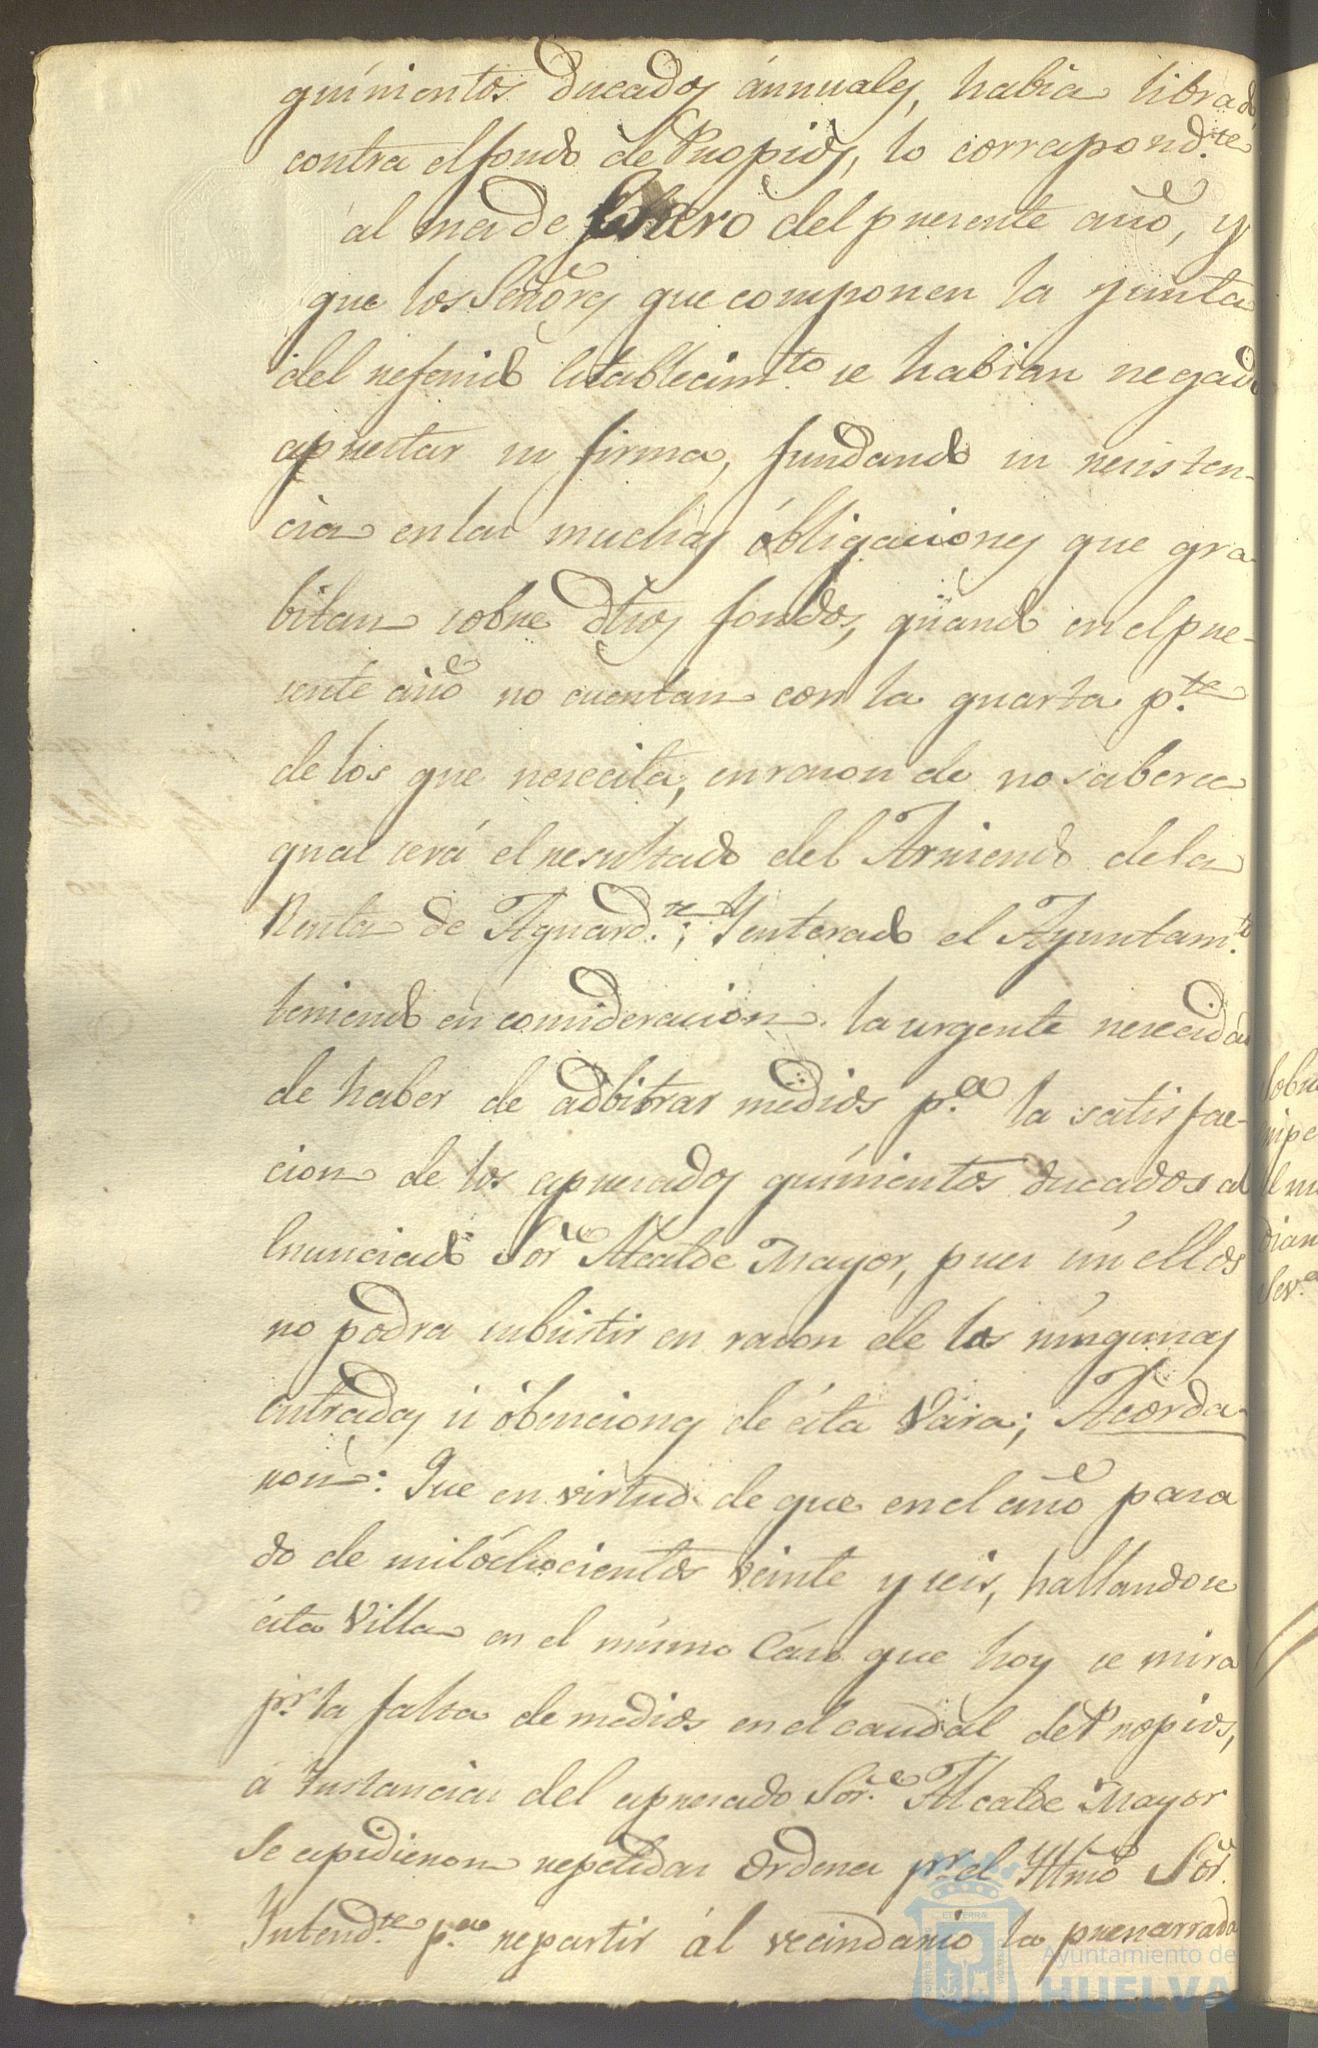 quinientos Ducados ánnuales, habia librado
contra el fondo de Propios, lo correspond.te
al mes de febrero del presente año, y
que los Señores que componen la Junta
del referido Establecim.to se habian negado
aprestar su firma, fundando su resisten-
cia en las muchas óbligaciones que gra-
bitan sobre dhos fondos, quando en el pre-
sente año no cuentan con la quarta p.te
de los que nececita, en razon de no saberce
qual será el resultado del Arriendo de la
Renta de Aguard.te; Y enterado el Ayuntam.to
teniendo en concideracion la urgente nececidad
de haber de adbitrar medios p.a la satisfac-
cion de los apresados quinientos ducados al
Enunciado Sor. Alcalde Mayor, pues sin ellos
no podra subsistir en razon de las ningunas
entradas ú óbenciones de ésta Vara; Acorda-
ron: Que en virtud de que en el año pasa
do de mil óchocientos veinte y seis, hallandose
ésta Villa en el mismo Cáso que hoy se mira
pr. la falta de medios en el caudal de Propios,
á Instancias del apresado Sor. Alcalde Mayor
Se espidieron repetidas Ordenes pr. el Iltmo Sor.
Intend.te p.a repartir ál vecindario la prenarrada
sobre
Sev.a
Ayuntamiento de
HUELVA